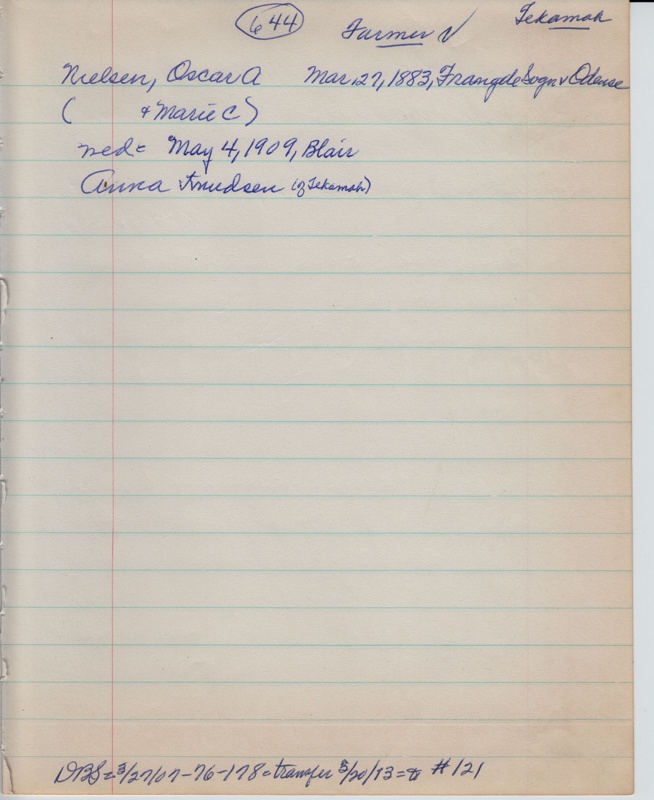 644 Farmer √ Tekamah
Nielsen, Oscar A Mar. 27, 1883, Frangde Sogn v Odense
( & Marie C)
med= May 4, 1909, Blair
Anna Knudsen (of Tekamah)
DBS= 3/27/07-76-178= transfer 3/20/13= to #121